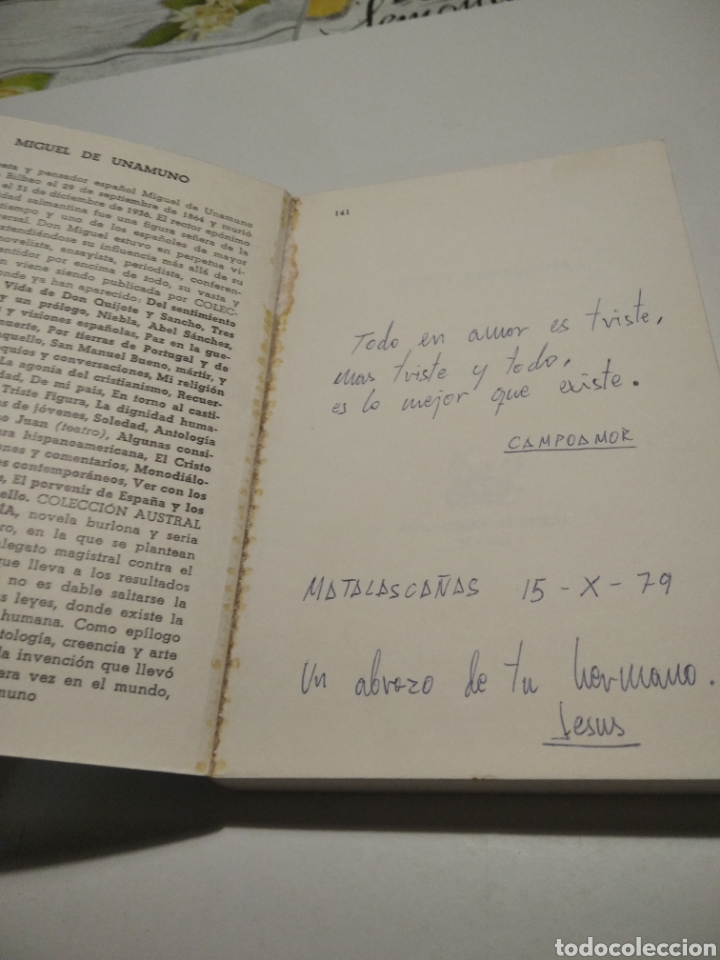 MIGUEL DE UNAMUNO
y pensador español Miguel de Unamuno
Bilbao el 29 de septiembre de 1864 y murió
el 31 de diciembre de 1936. El rector epónimo
salmantina fue una figura señera de la
tiempo y uno de los españoles de mayor
Don Miguel estuvo en perpetua vi-
su influencia más allá de su
novelista, ensayista, periodista, conferen-
por encima de todo, su vasta y
viene siendo publicada por COLEC-
ya han aparecido: Del sentimiento
Vida de Don Quijote y Sancho, Tres
y un prólogo, Niebla, Abel Sánchez,
y visiones españolas, Paz en la gue-
Por tierras de Portugal y de
San Manuel Bueno, mártir, y
y conversaciones, Mi religión
La agonía del cristianismo, Recuer-
De mi país, En torno al casti-
Triste Figura, La dignidad huma-
de jóvenes, Soledad, Antología
Juan (teatro), Algunas consi-
hispanoamericana, El Cristo
y comentarios, Monodiálo-
contemporáneos, Ver con los
El porvenir de España y los
COLECCIÓN AUSTRAL
novela burlona y seria
en la que se plantean
alegato magistral contra el
que lleva a los resultados
no es dable saltarse la
leyes, donde existe la
humana. Como epílogo
creencia y arte
la invención que llevó
vez en el mundo,
141
Todo en amor es triste,
mas triste y todo,
es lo mejor que existe.
CAMPOAMOR
MATALASCAÑAS 15-X-79
Un abrazo de tu hermano.
Jesus
todocoleccion